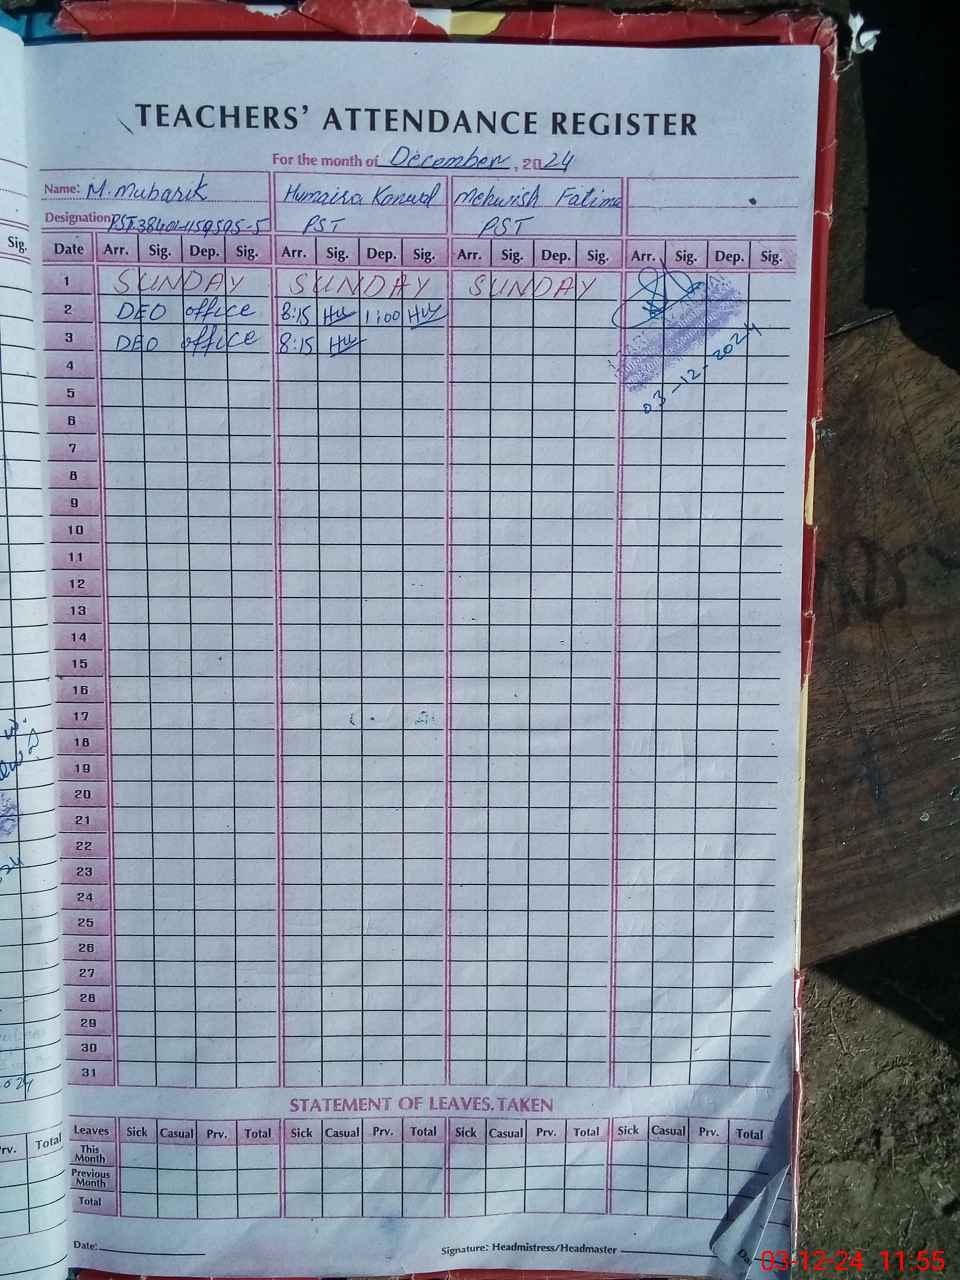 TEACHERS' ATTENDANCE REGISTER
For the month of December, 2024
Name: M. Mubarik Humaira Kanwal Mehwish Fatima
Designation PST 38401-1159595-5 PST PST
Sig. Date Arr. Sig. Dep. Sig. Arr. Sig. Dep. Sig. Arr. Sig. Dep. Sig. Arr. Sig. Dep. Sig.
1 SUNDAY SUNDAY SUNDAY
2 DEO office 8:15 1:00
3 DEO office 8:15
03-12-2024
4
5
6
7
8
9
10
11
12
13
14
15
16
17
18
19
20
21
22
23
24
25
26
27
28
29
30
31
STATEMENT OF LEAVES TAKEN
rv. Total Leaves Sick Casual Prv. Total Sick Casual Prv. Total Sick Casual Prv. Total Sick Casual Prv. Total
This Month
Previous Month
Total
Date: Signature: Headmistress/Headmaster
03-12-24 11:55